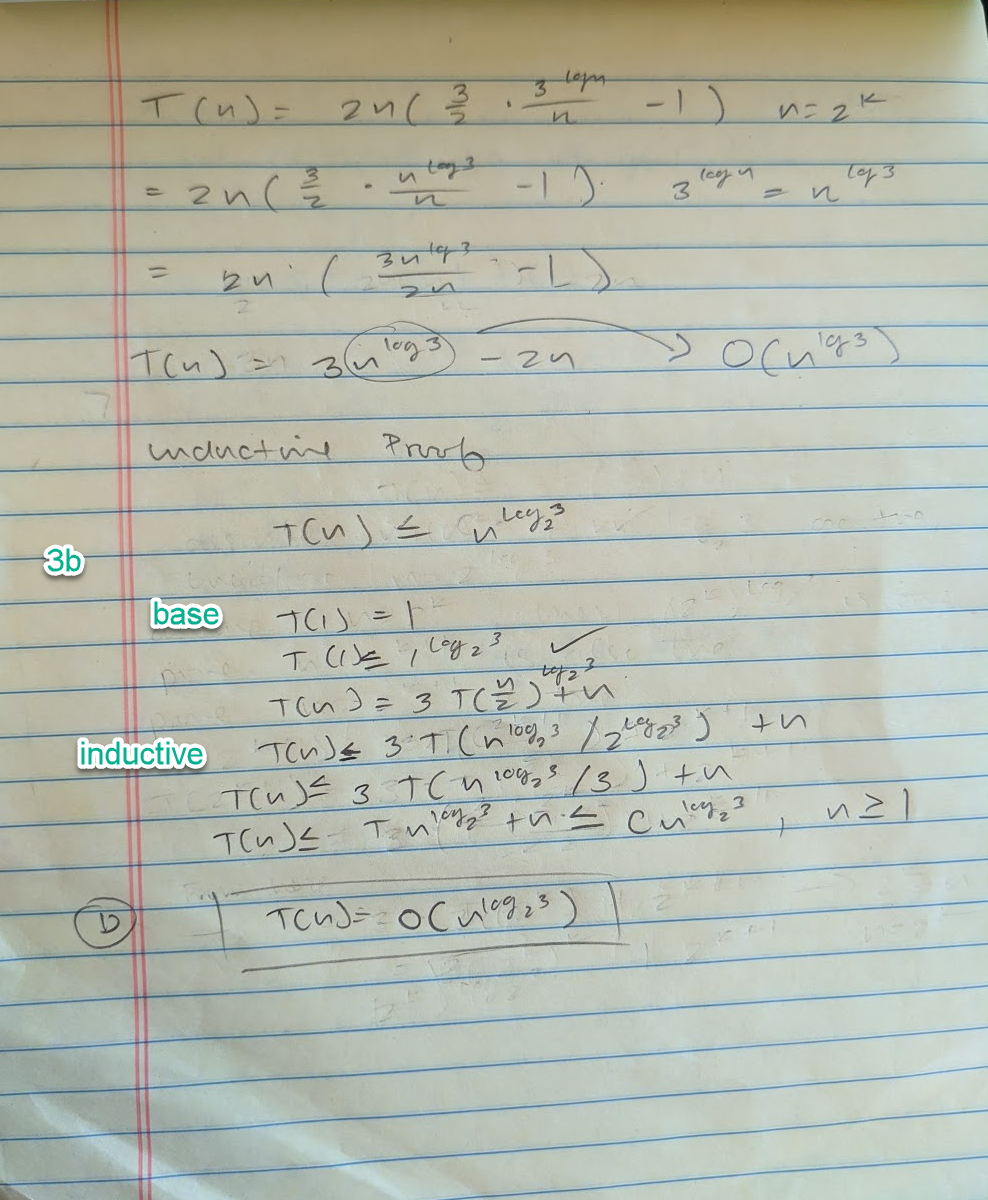 T(n) = 2n( 3/2 · 3^logn/n - 1 ) n = 2^k
= 2n( 3/2 · n^log3/n - 1 ). 3^logn = n^log3
= 2n · ( 3n^lg3/2n - 1 )
T(n) = 3 n^log3 - 2n → O(n^lg3)
inductive Proof
T(n) ≤ n^log₂3
3b
base T(1) = 1
T(1) ≤ 1^log₂3 ✓
T(n) = 3 T(n/2)^log₂3 + n
inductive T(n) ≤ 3 T(n^log₂3 / 2^log₂3) + n
T(n) ≤ 3 T(n^log₂3 / 3) + n
T(n) ≤ T n^log₂3 + n ≤ C n^log₂3 , n ≥ 1
D T(n) = O(n^log₂3)